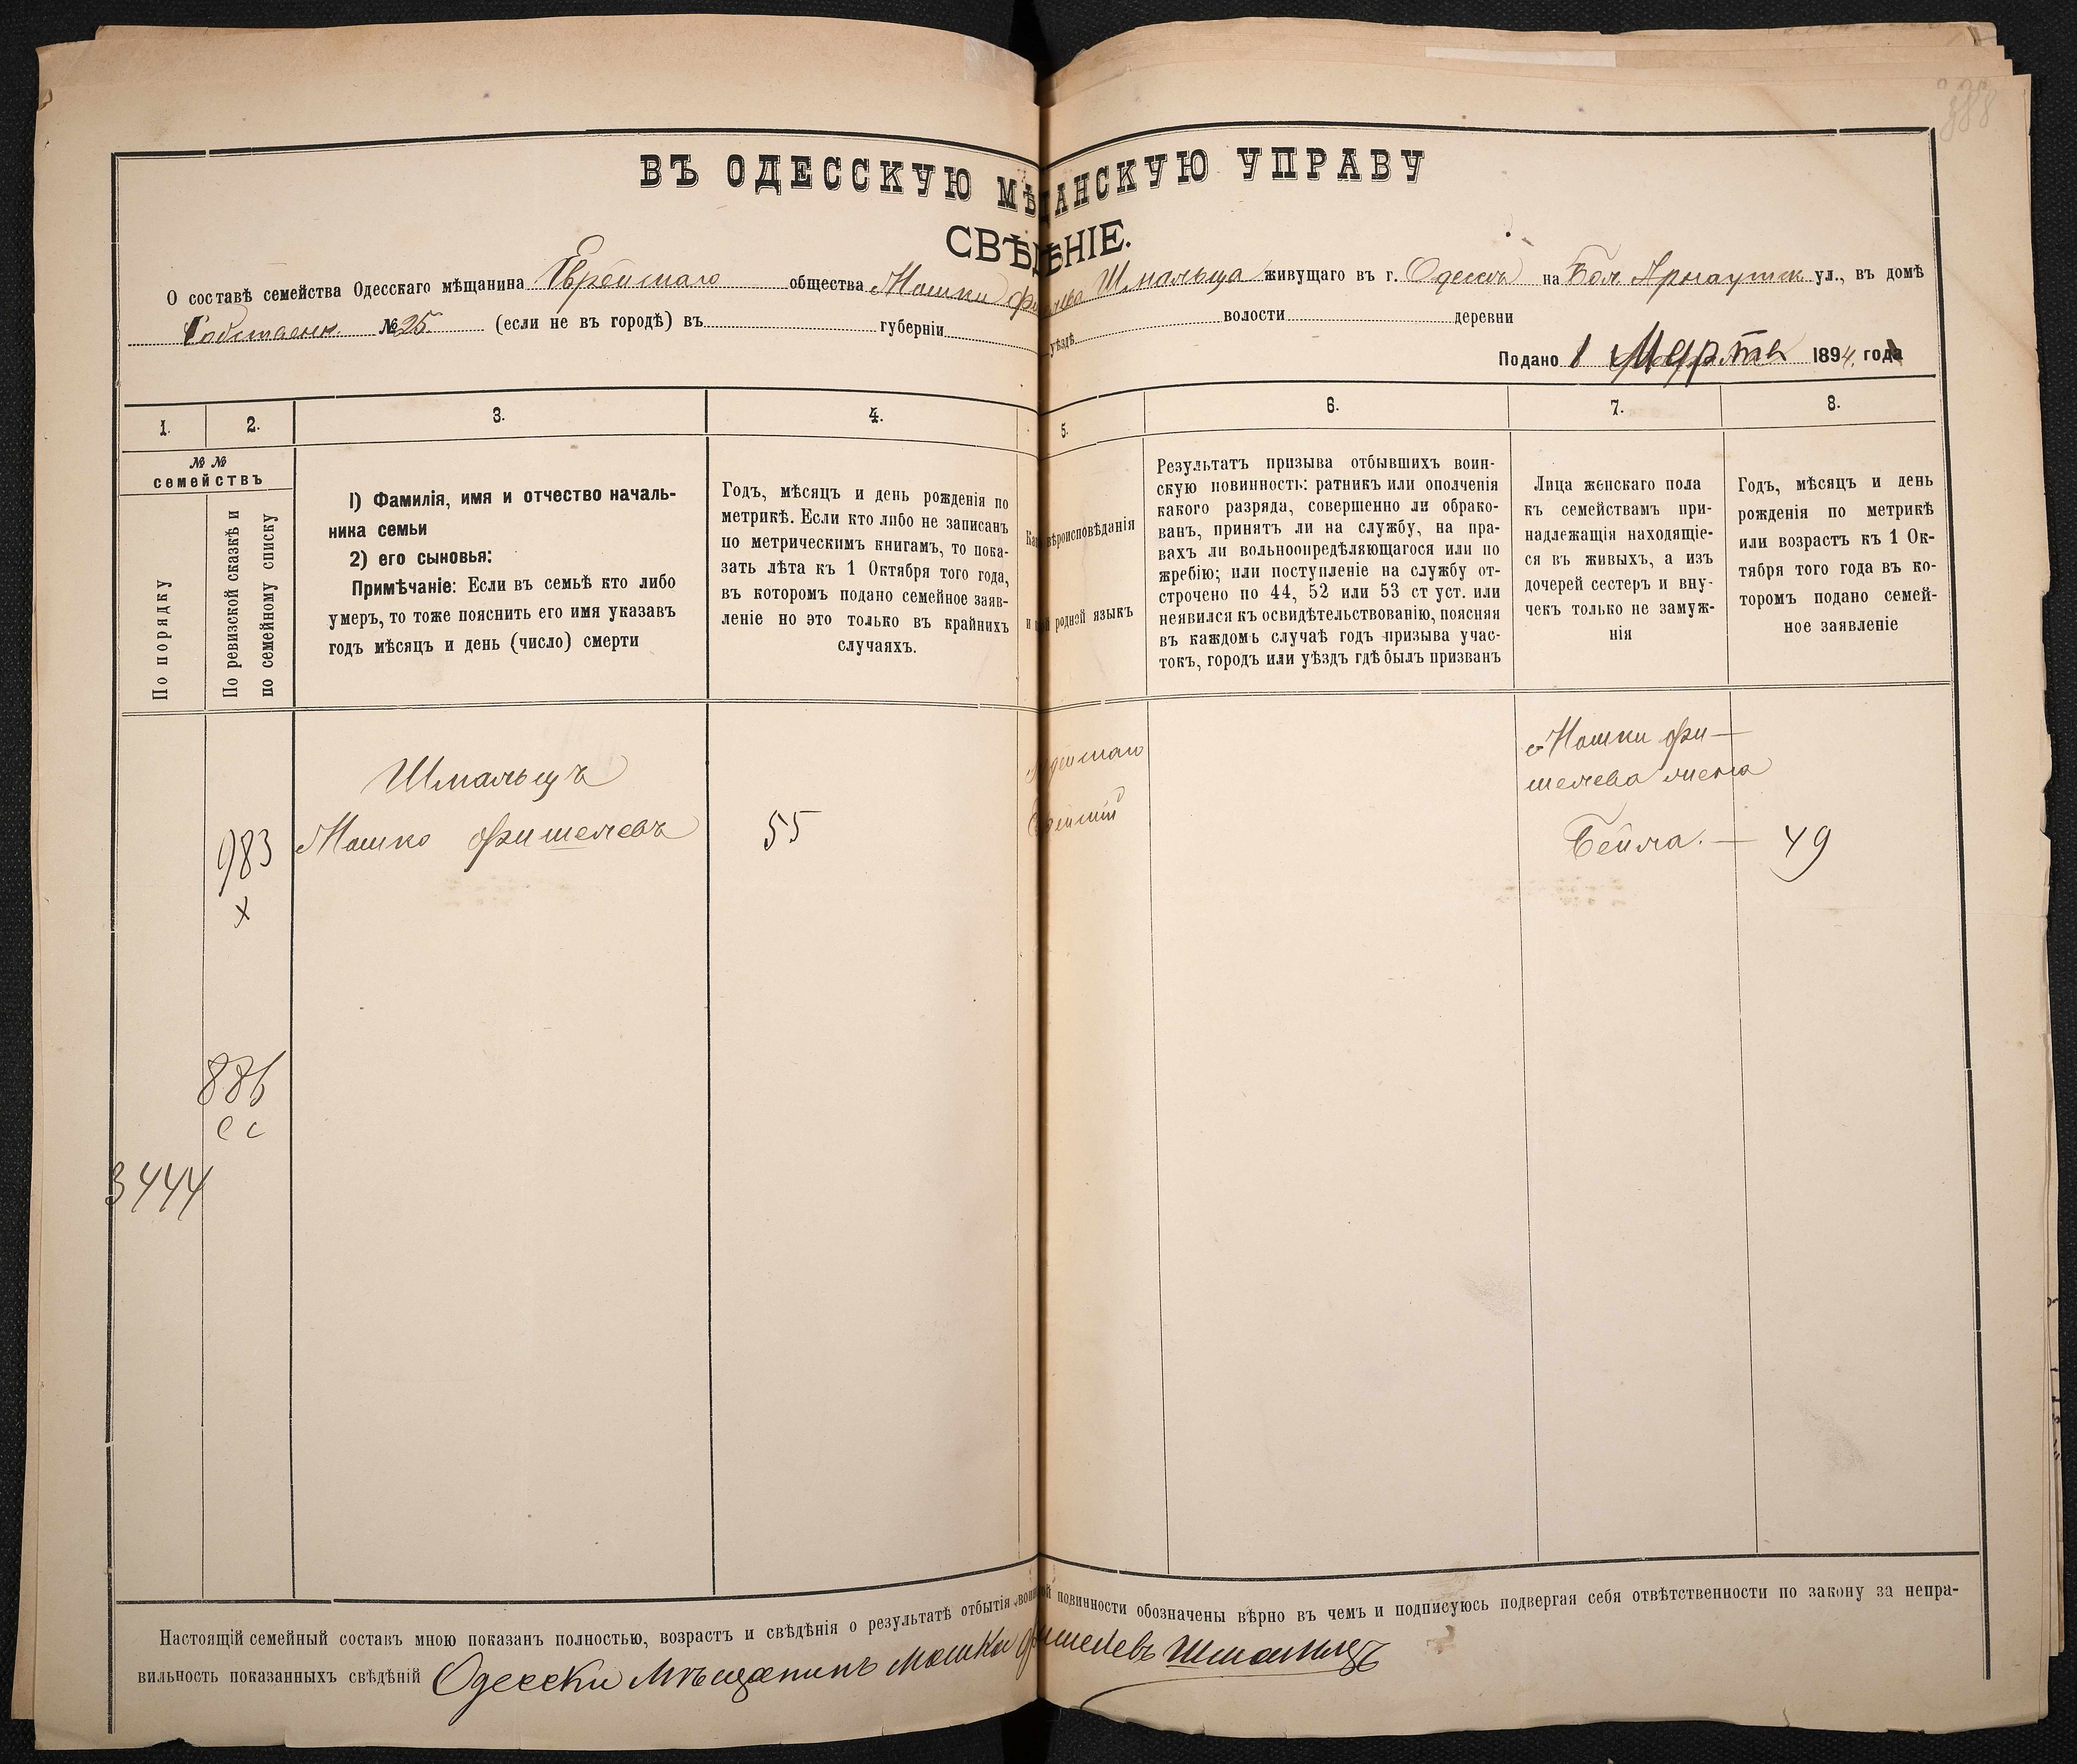 388
ВЪ ОДЕССКУЮ МѢЩАНСКУЮ УПРАВУ
СВѢДѢНІЕ.
О составѣ семейства Одесскаго мѣщанина Еврейскаго общества Мошки Фишелева Шмальца живущаго въ г. Одессѣ на Бол Арнаутск ул., въ домѣ
Собственн. № 25 (если не въ городѣ) въ губерніи уѣздѣ волости деревни
Подано 1 Марта 1894 года
1. 2. 3. 4. 5. 6. 7. 8.
№ №
семействъ
По порядку
По ревизской сказкѣ и
по семейному списку
1) Фамилія, имя и отчество началь-
ника семьи
2) его сыновья:
Примѣчаніе: Если въ семьѣ кто либо
умеръ, то тоже пояснить его имя указавъ
годъ мѣсяцъ и день (число) смерти
Годъ, мѣсяцъ и день рожденія по
метрикѣ. Если кто либо не записанъ
по метрическимъ книгамъ, то пока-
зать лѣта къ 1 Октября того года,
въ которомъ подано семейное заяв-
леніе но это только въ крайнихъ
случаяхъ.
вѣроисповѣданія
родной языкъ
Результатъ призыва отбывшихъ воин-
скую повинность: ратникъ или ополченія
какого разряда, совершенно ли обрако-
ванъ, принятъ ли на службу, на пра-
вахъ ли вольноопредѣляющагося или по
жребію; или поступленіе на службу от-
строчено по 44, 52 или 53 ст уст. или
неявился къ освидѣтельствованію, поясняя
въ каждомъ случаѣ годъ призыва учас-
токъ, городъ или уѣздъ гдѣ былъ призванъ
Лица женскаго пола
къ семействамъ при-
надлежащія находящіе-
ся въ живыхъ, а изъ
дочерей сестеръ и вну-
чекъ только не замуж-
нія
Годъ, мѣсяцъ и день
рожденія по метрикѣ
или возрастъ къ 1 Ок-
тября того года въ ко-
торомъ подано семей-
ное заявленіе
Шмальцъ
983 Мошко Фишелевъ 55
х
Мошки Фи-
шелева жена
Бейла. — 49
886
3444
Настоящій семейный составъ мною показанъ полностью, возрастъ и свѣдѣнія о результатѣ отбытія воинской повинности обозначены вѣрно въ чемъ и подписуюсь подвергая себя отвѣтственности по закону за непра-
вильность показанныхъ свѣдѣній Одесски Мѣщанинъ Мошки Фишелевъ Шмальцъ